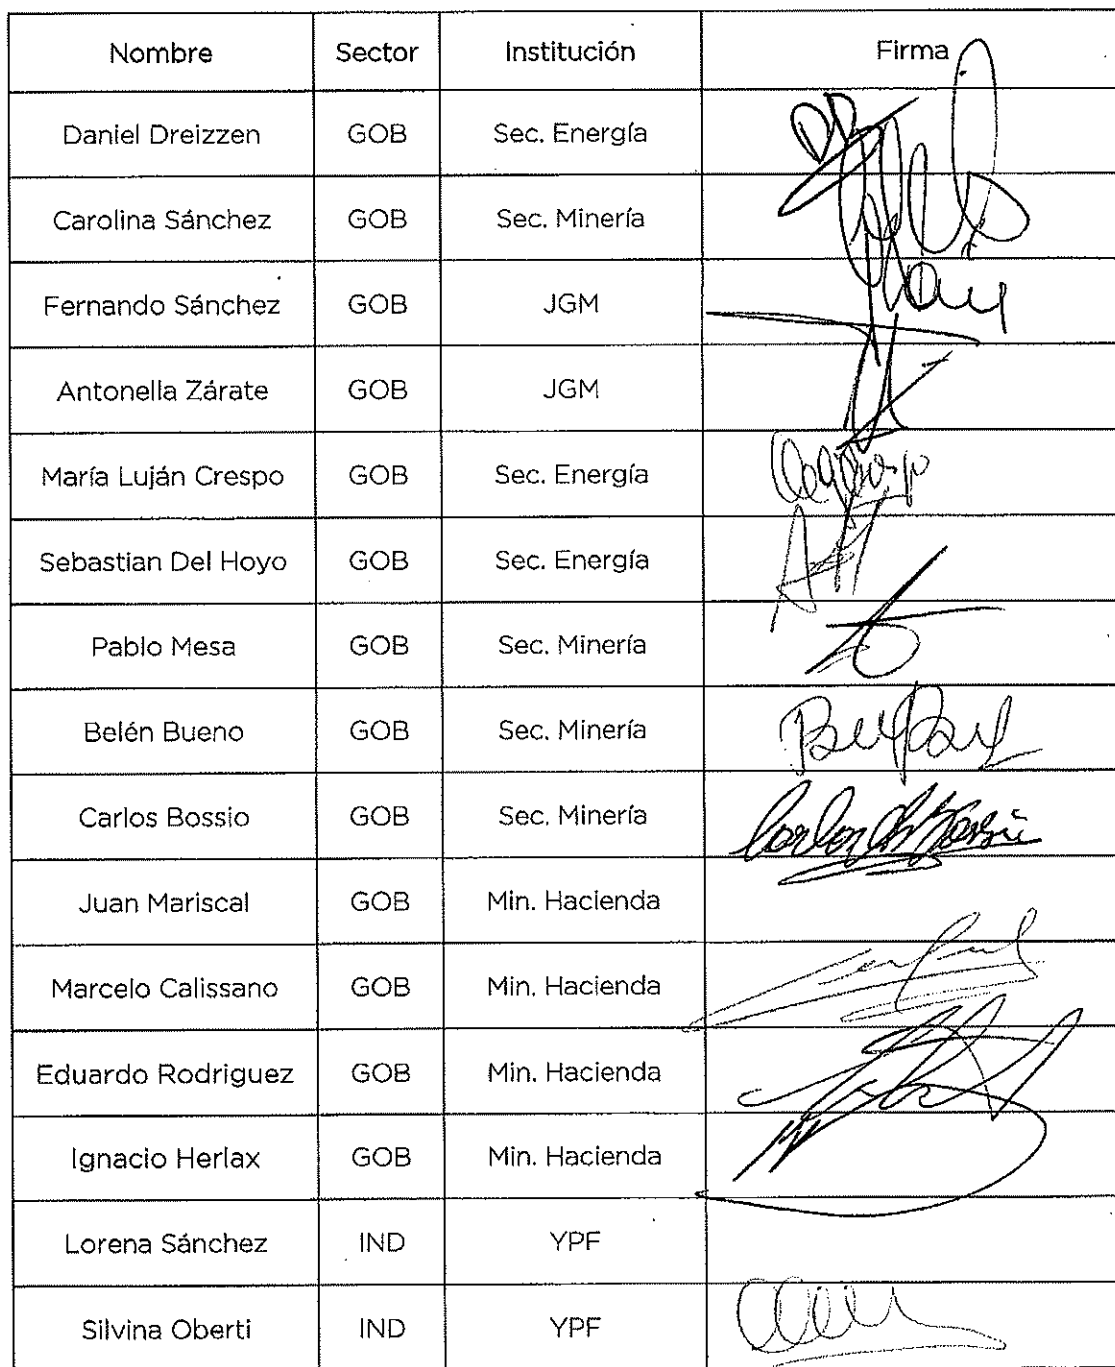 Nombre Sector Institución Firma
Daniel Dreizzen GOB Sec. Energía
Carolina Sánchez GOB Sec. Minería
Fernando Sánchez GOB JGM
Antonella Zárate GOB JGM
María Luján Crespo GOB Sec. Energía
Sebastian Del Hoyo GOB Sec. Energía
Pablo Mesa GOB Sec. Minería
Belén Bueno GOB Sec. Minería
Carlos Bossio GOB Sec. Minería
Juan Mariscal GOB Min. Hacienda
Marcelo Calissano GOB Min. Hacienda
Eduardo Rodriguez GOB Min. Hacienda
Ignacio Herlax GOB Min. Hacienda
Lorena Sánchez IND YPF
Silvina Oberti IND YPF